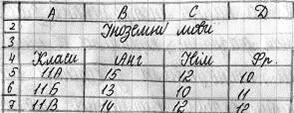 A B C D
2 Іноземні мови
3
4 Класи Анг Нім Фр
5 11А 15 12 10
6 11Б 13 10 11
7 11В 14 12 12